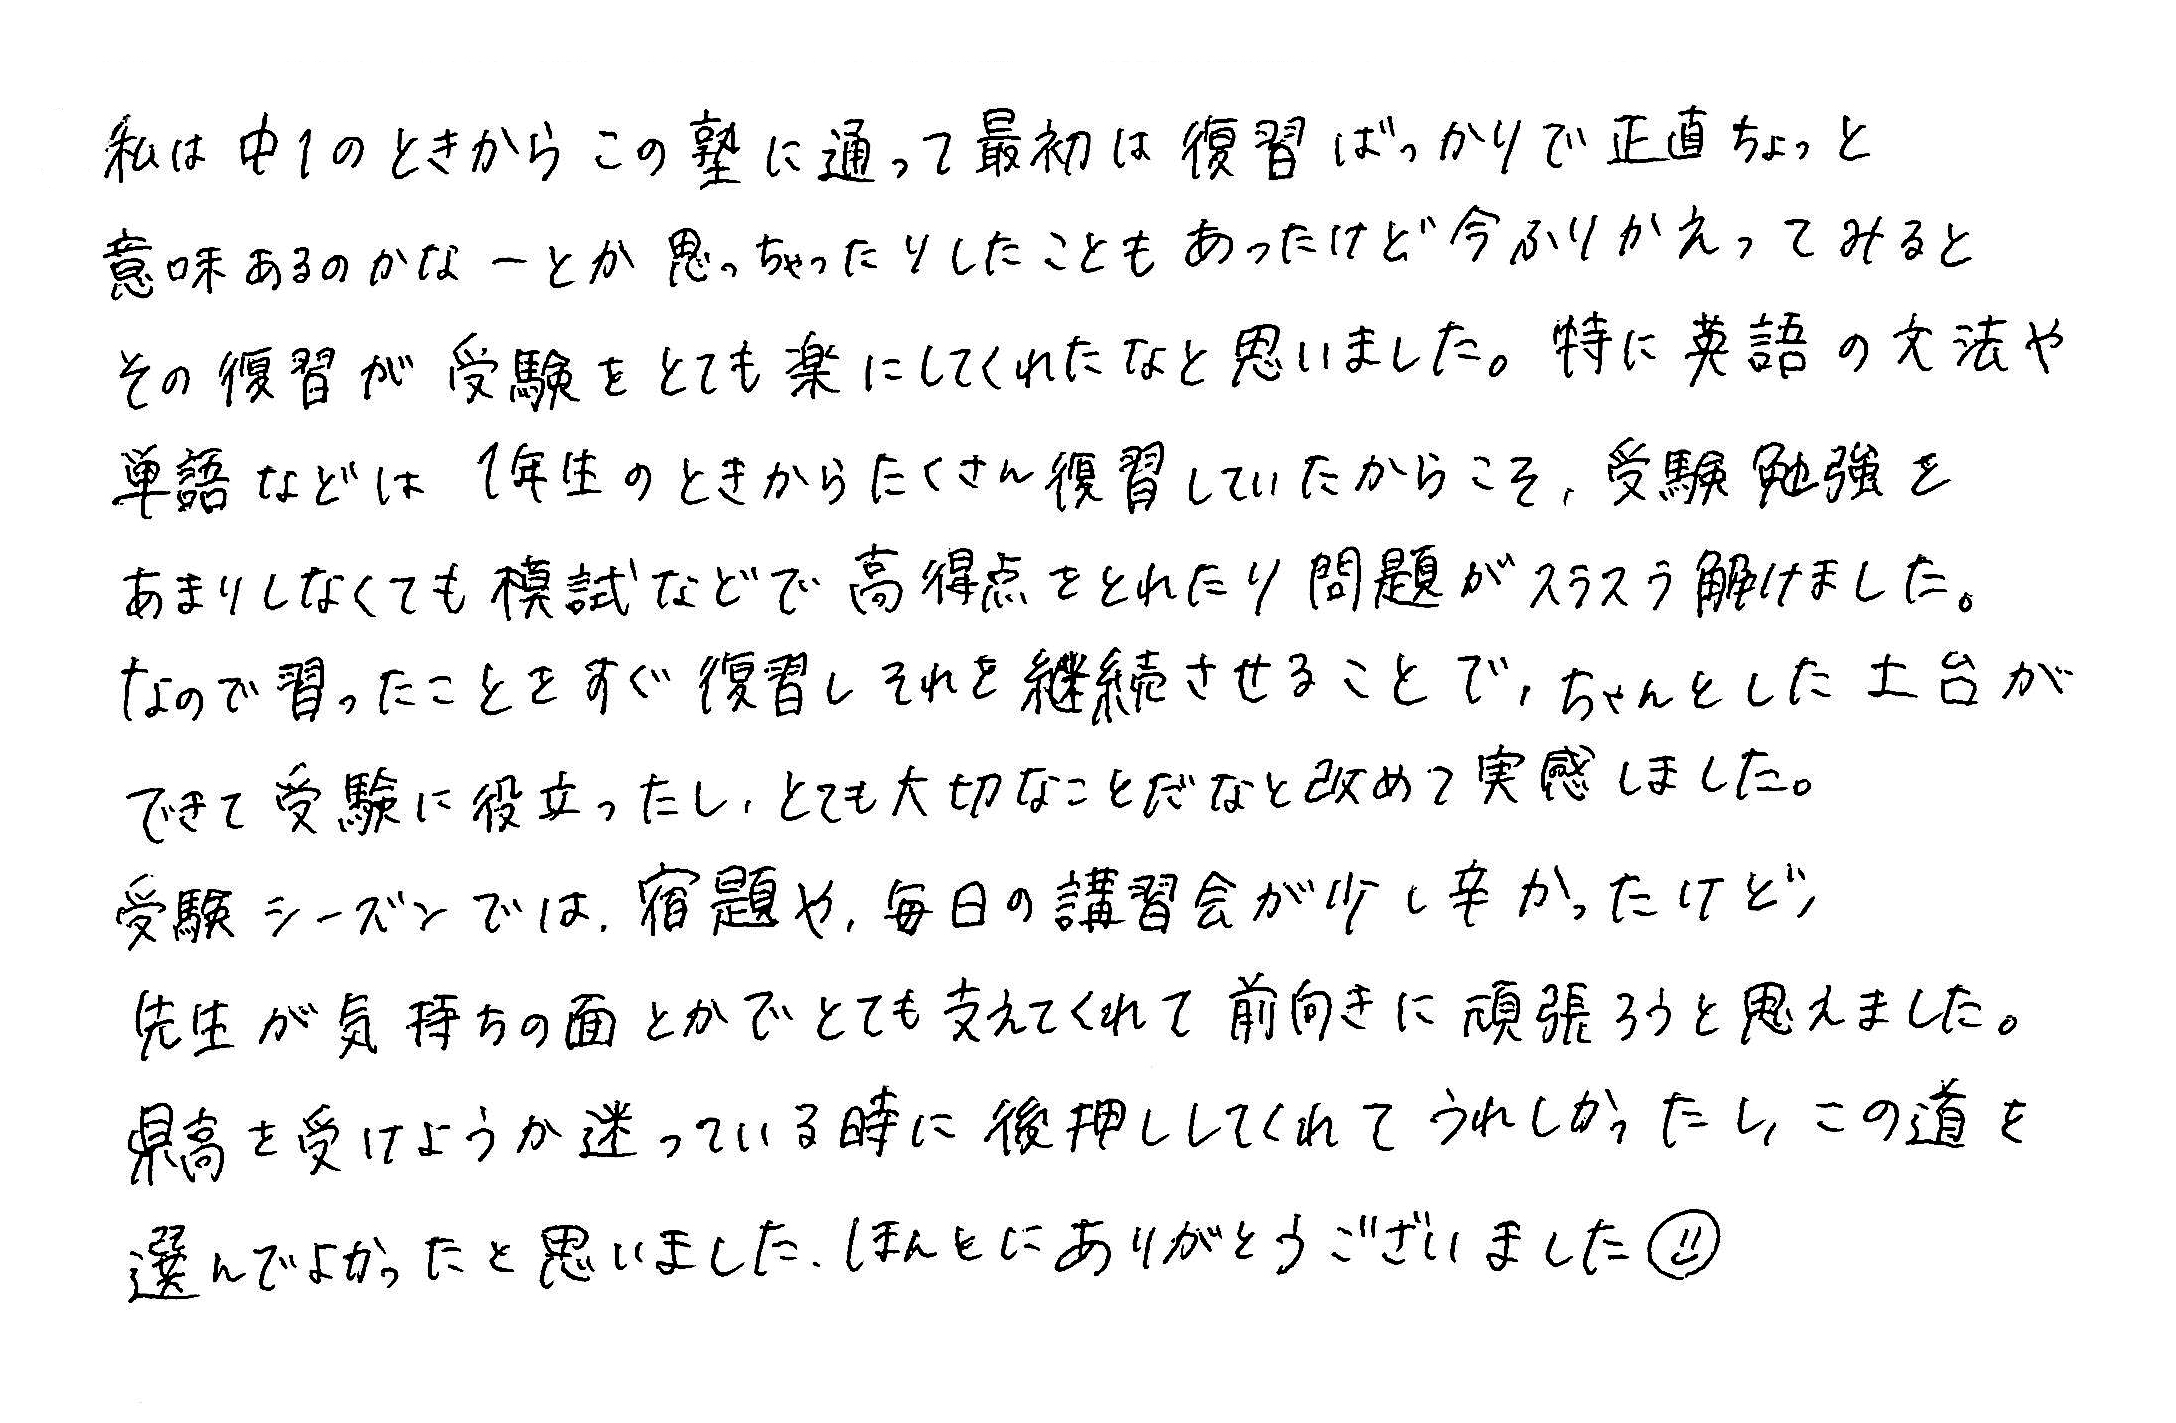 私は中1のときからこの塾に通って最初は復習ばっかりで正直ちょっと
意味あるのかなーとか思っちゃったりしたこともあったけど今ふりかえってみると
その復習が受験をとても楽にしてくれたなと思いました。特に英語の文法や
単語などは1年生のときからたくさん復習していたからこそ、受験勉強を
あまりしなくても模試などで高得点をとれたり問題がスラスラ解けました。
なので習ったことをすぐ復習しそれを継続させることで、ちゃんとした土台が
できて受験に役立ったし、とても大切なことだなと改めて実感しました。
受験シーズンでは、宿題や、毎日の講習会が少し辛かったけど、
先生が気持ちの面とかでとても支えてくれて前向きに頑張ろうと思えました。
県高を受けようか迷っている時に後押ししてくれてうれしかったし、この道を
選んでよかったと思いました、ほんとにありがとうございました